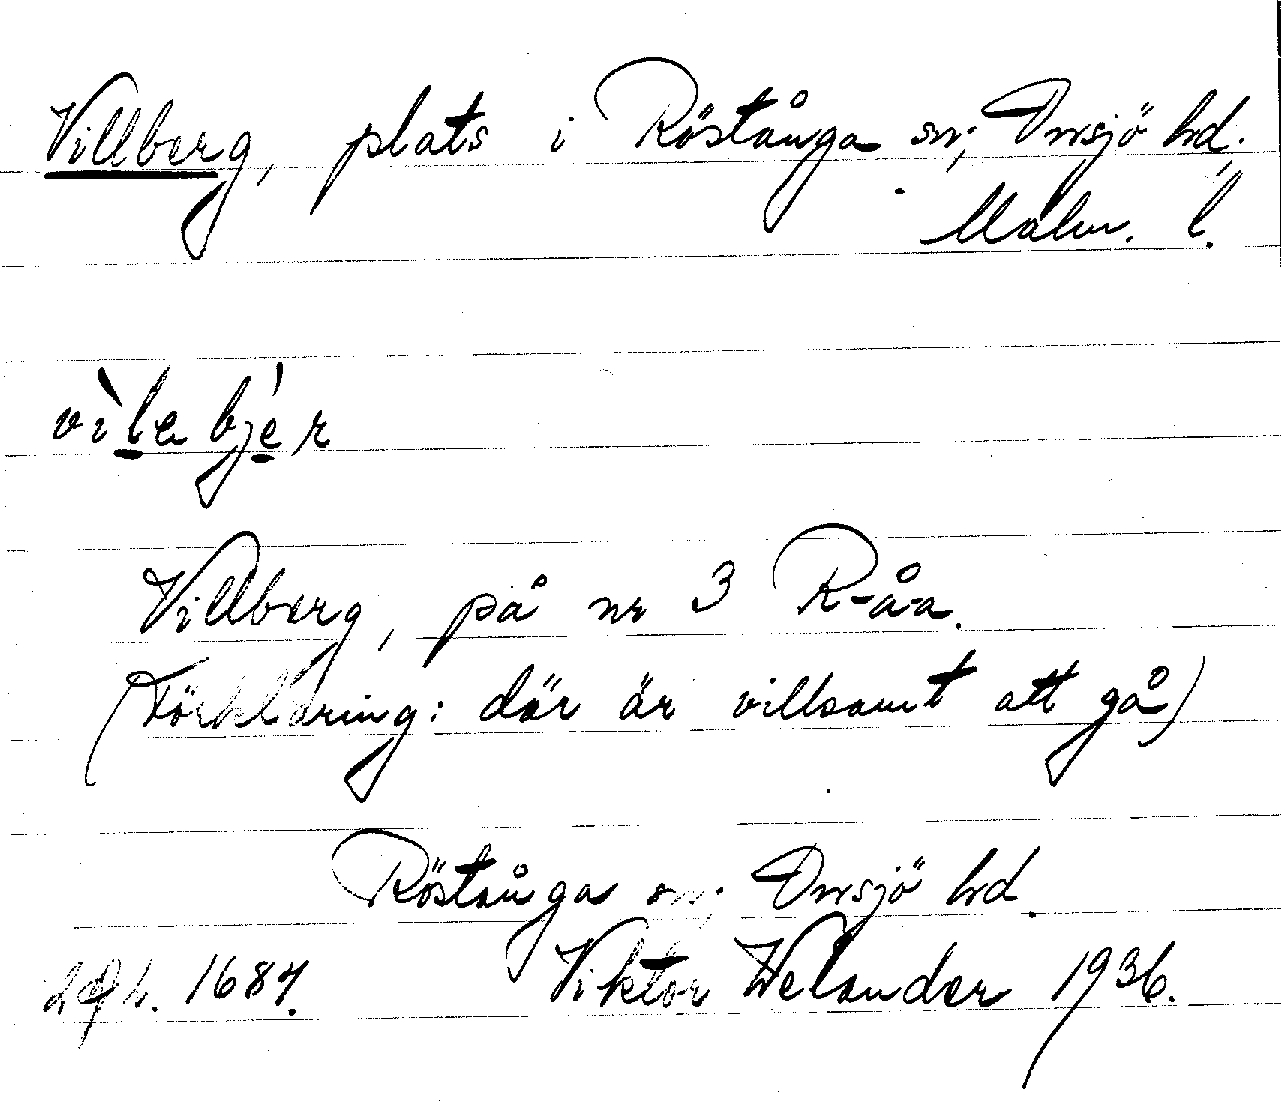 Villberg, plats i Röstånga sn; Onsjö hd.
Malm. l.
vìlebjér
Villberg, på nr 3 R-å-a.
(Förklaring: där är villsamt att gå)
Röstånga sn; Onsjö hd.
1684. Viktor Welander 1936.